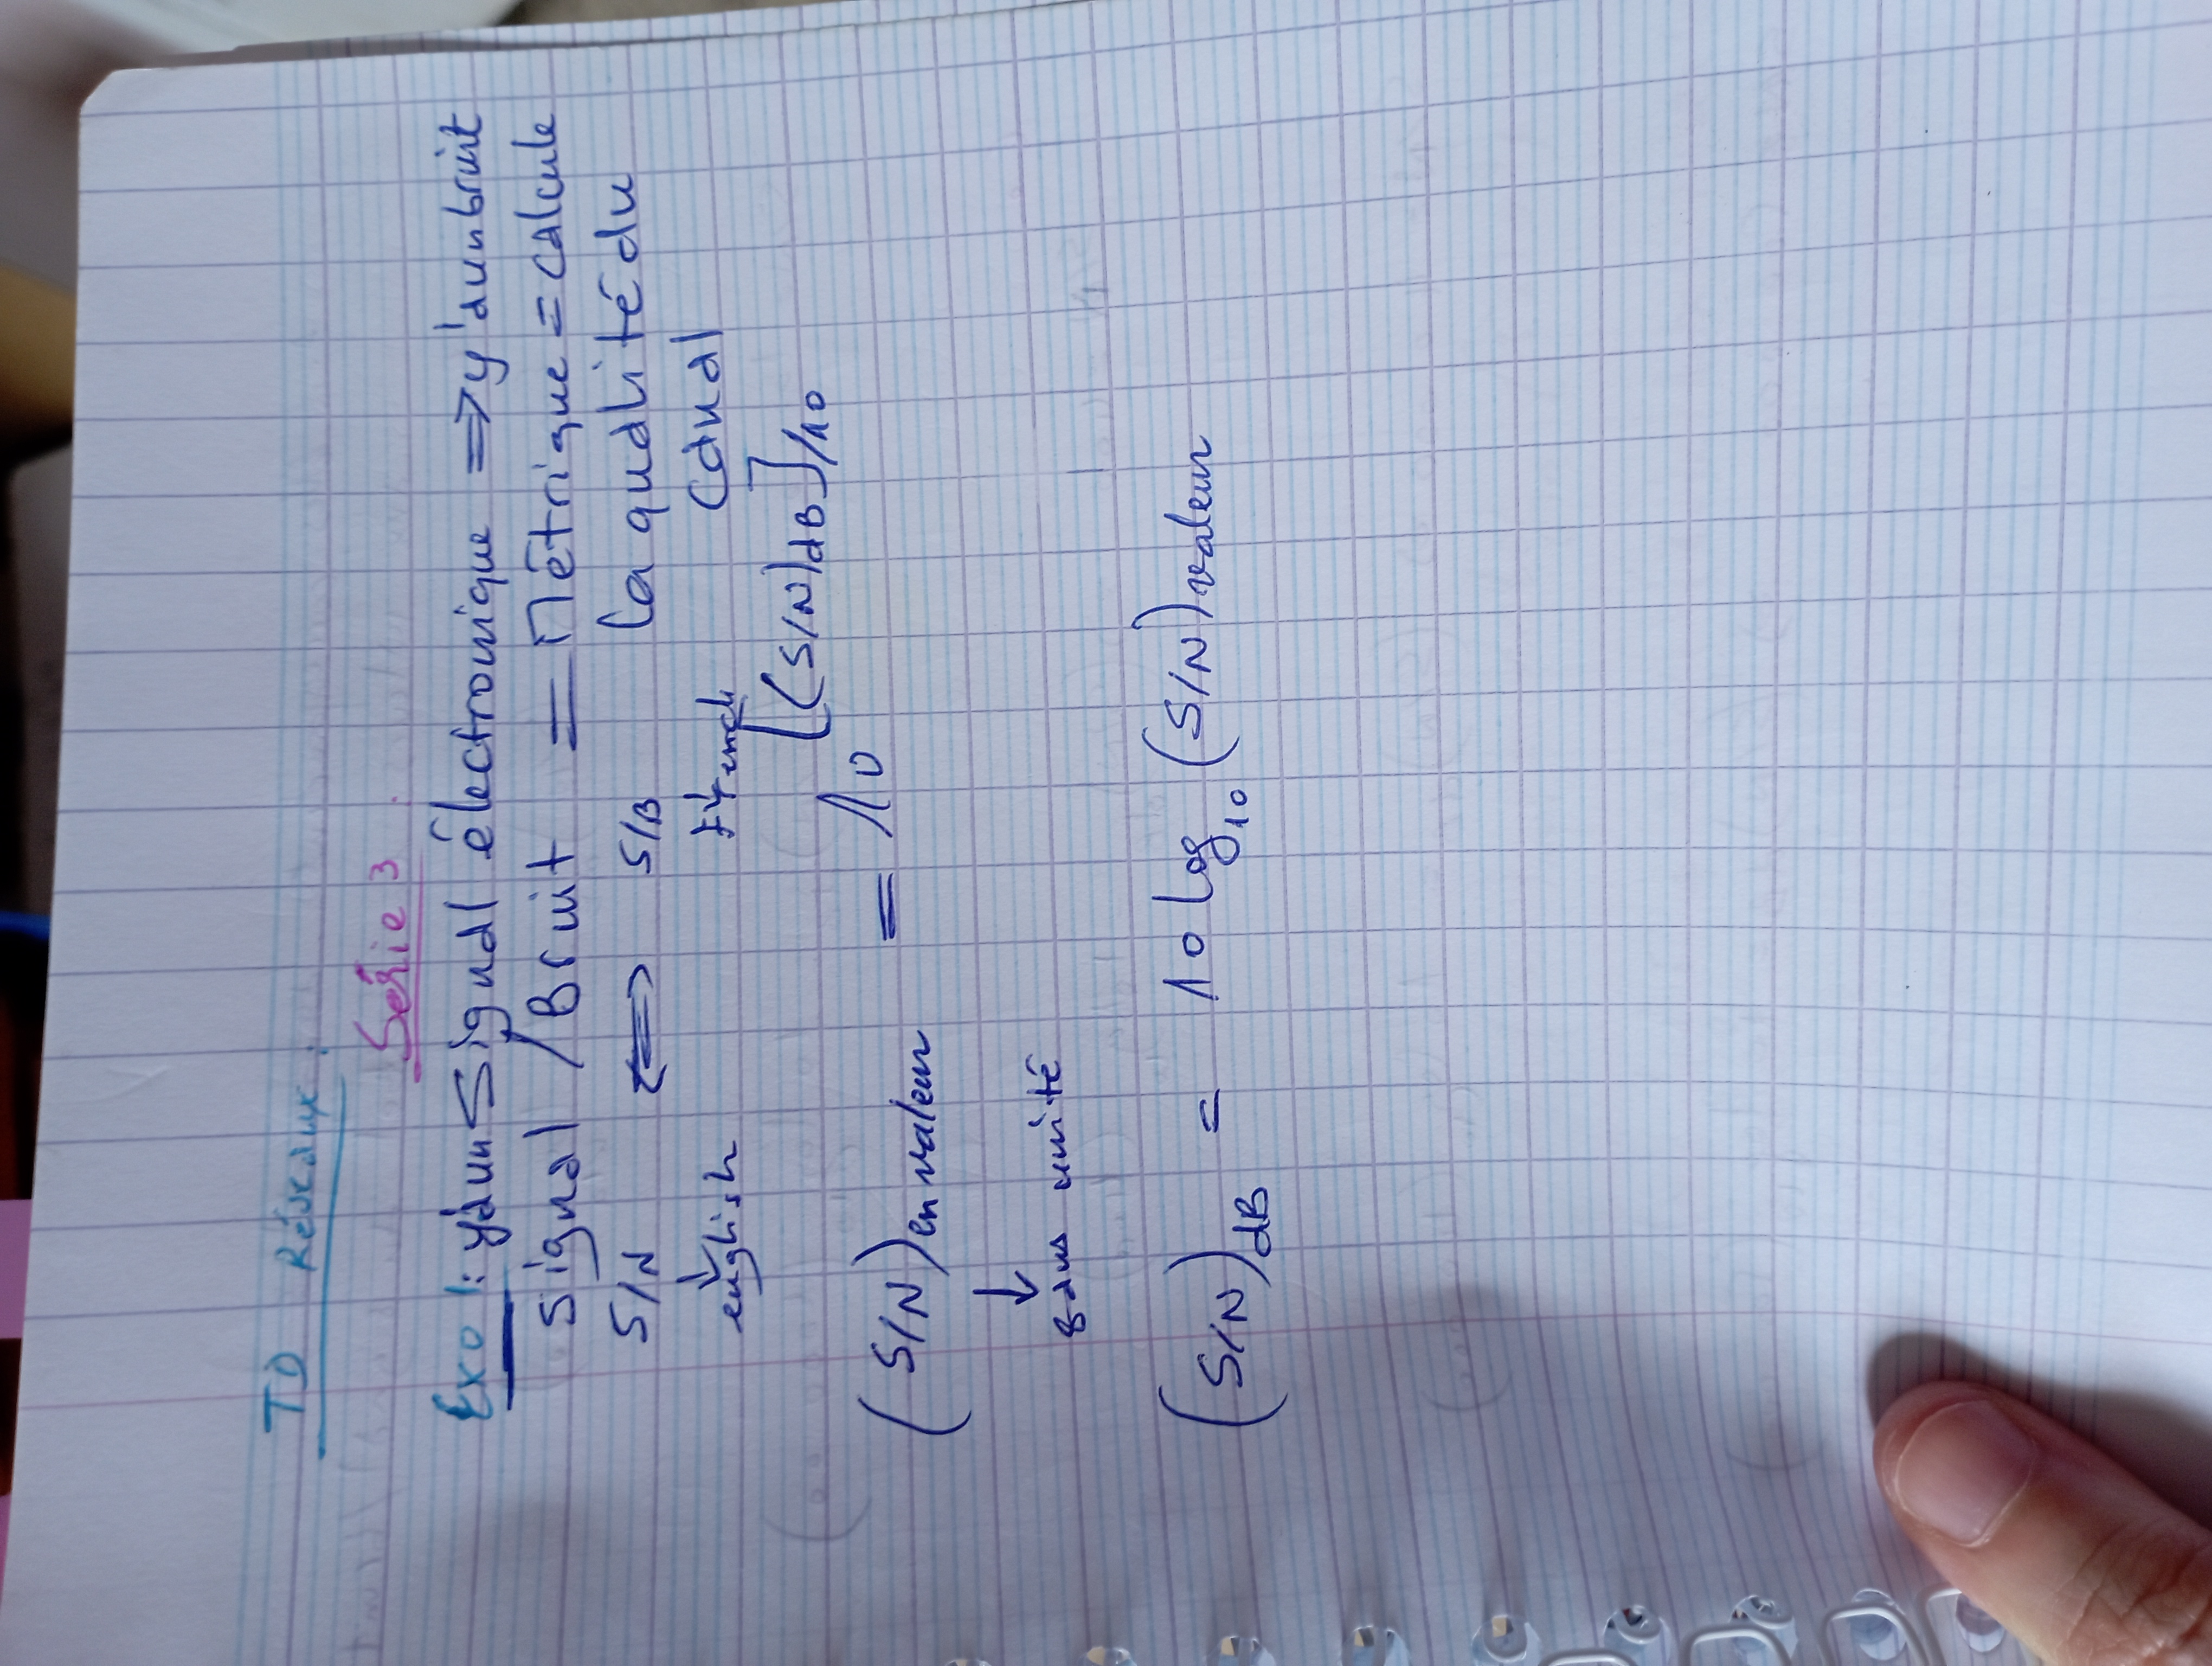 TD Réseaux :
Série 3 :
Exo 1: y'a un Signal électronique => y'a un bruit
Signal / Bruit = Métrique = calcule
S/N <=> S/B la qualité du
↓ ↓ canal
english French
(S/N) en valeur = 10^[(S/N)dB]/10
↓
sans unité
(S/N)dB = 10 log₁₀ (S/N) valeur